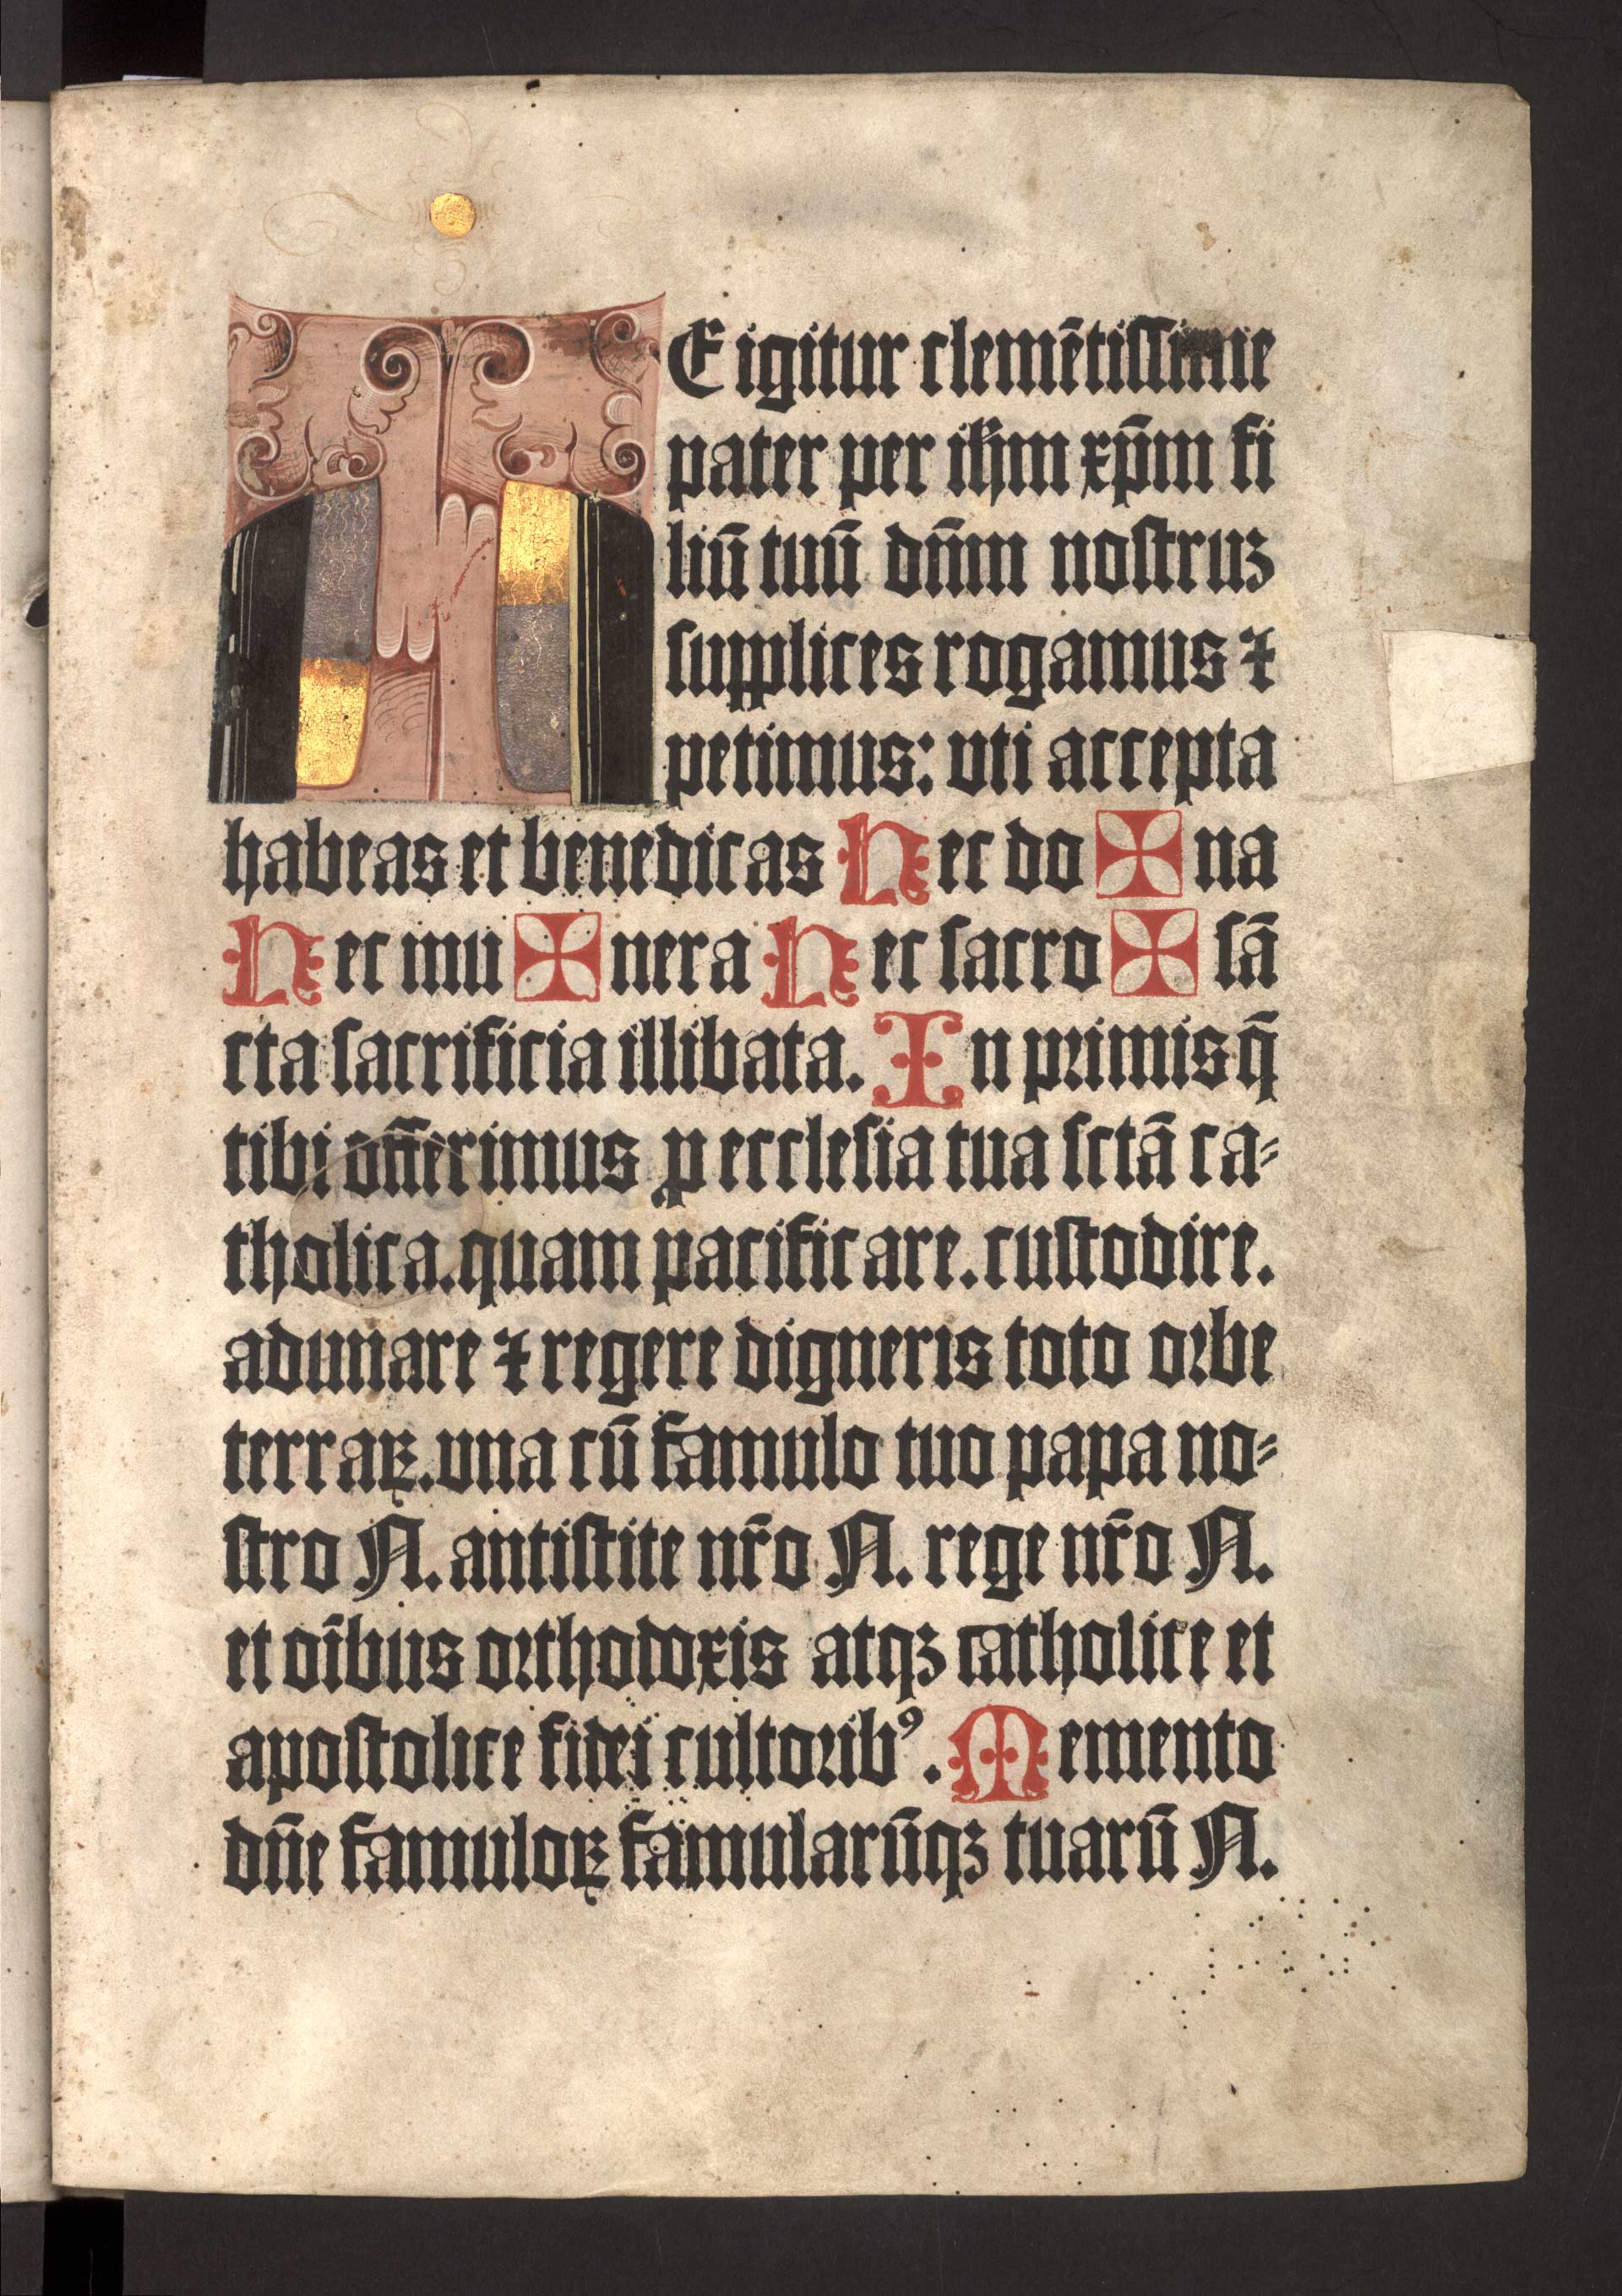 TE igitur clemētissime
pater per ihm̄ xp̄m fi
liū tuū dn̄m nostruꝫ
supplices rogamus ⁊
petimus: vti accepta
habeas et benedicas Hec do ✠ na
Hec mu ✠ nera Hec sacro ✠ sā
cta sacrificia illibata. In primis q̄
tibi offerimus ꝓ ecclesia tua sctā ca⸗
tholica. quam pacificare. custodire.
adunare ⁊ regere digneris toto orbe
terraꝝ. vna cū famulo tuo papa no⸗
stro N. antistite nr̄o N. rege nr̄o N.
et oībus orthodoxis atqꝫ catholice et
apostolice fidei cultoribꝰ. Memento
dn̄e famuloꝝ famularūqꝫ tuarū N.